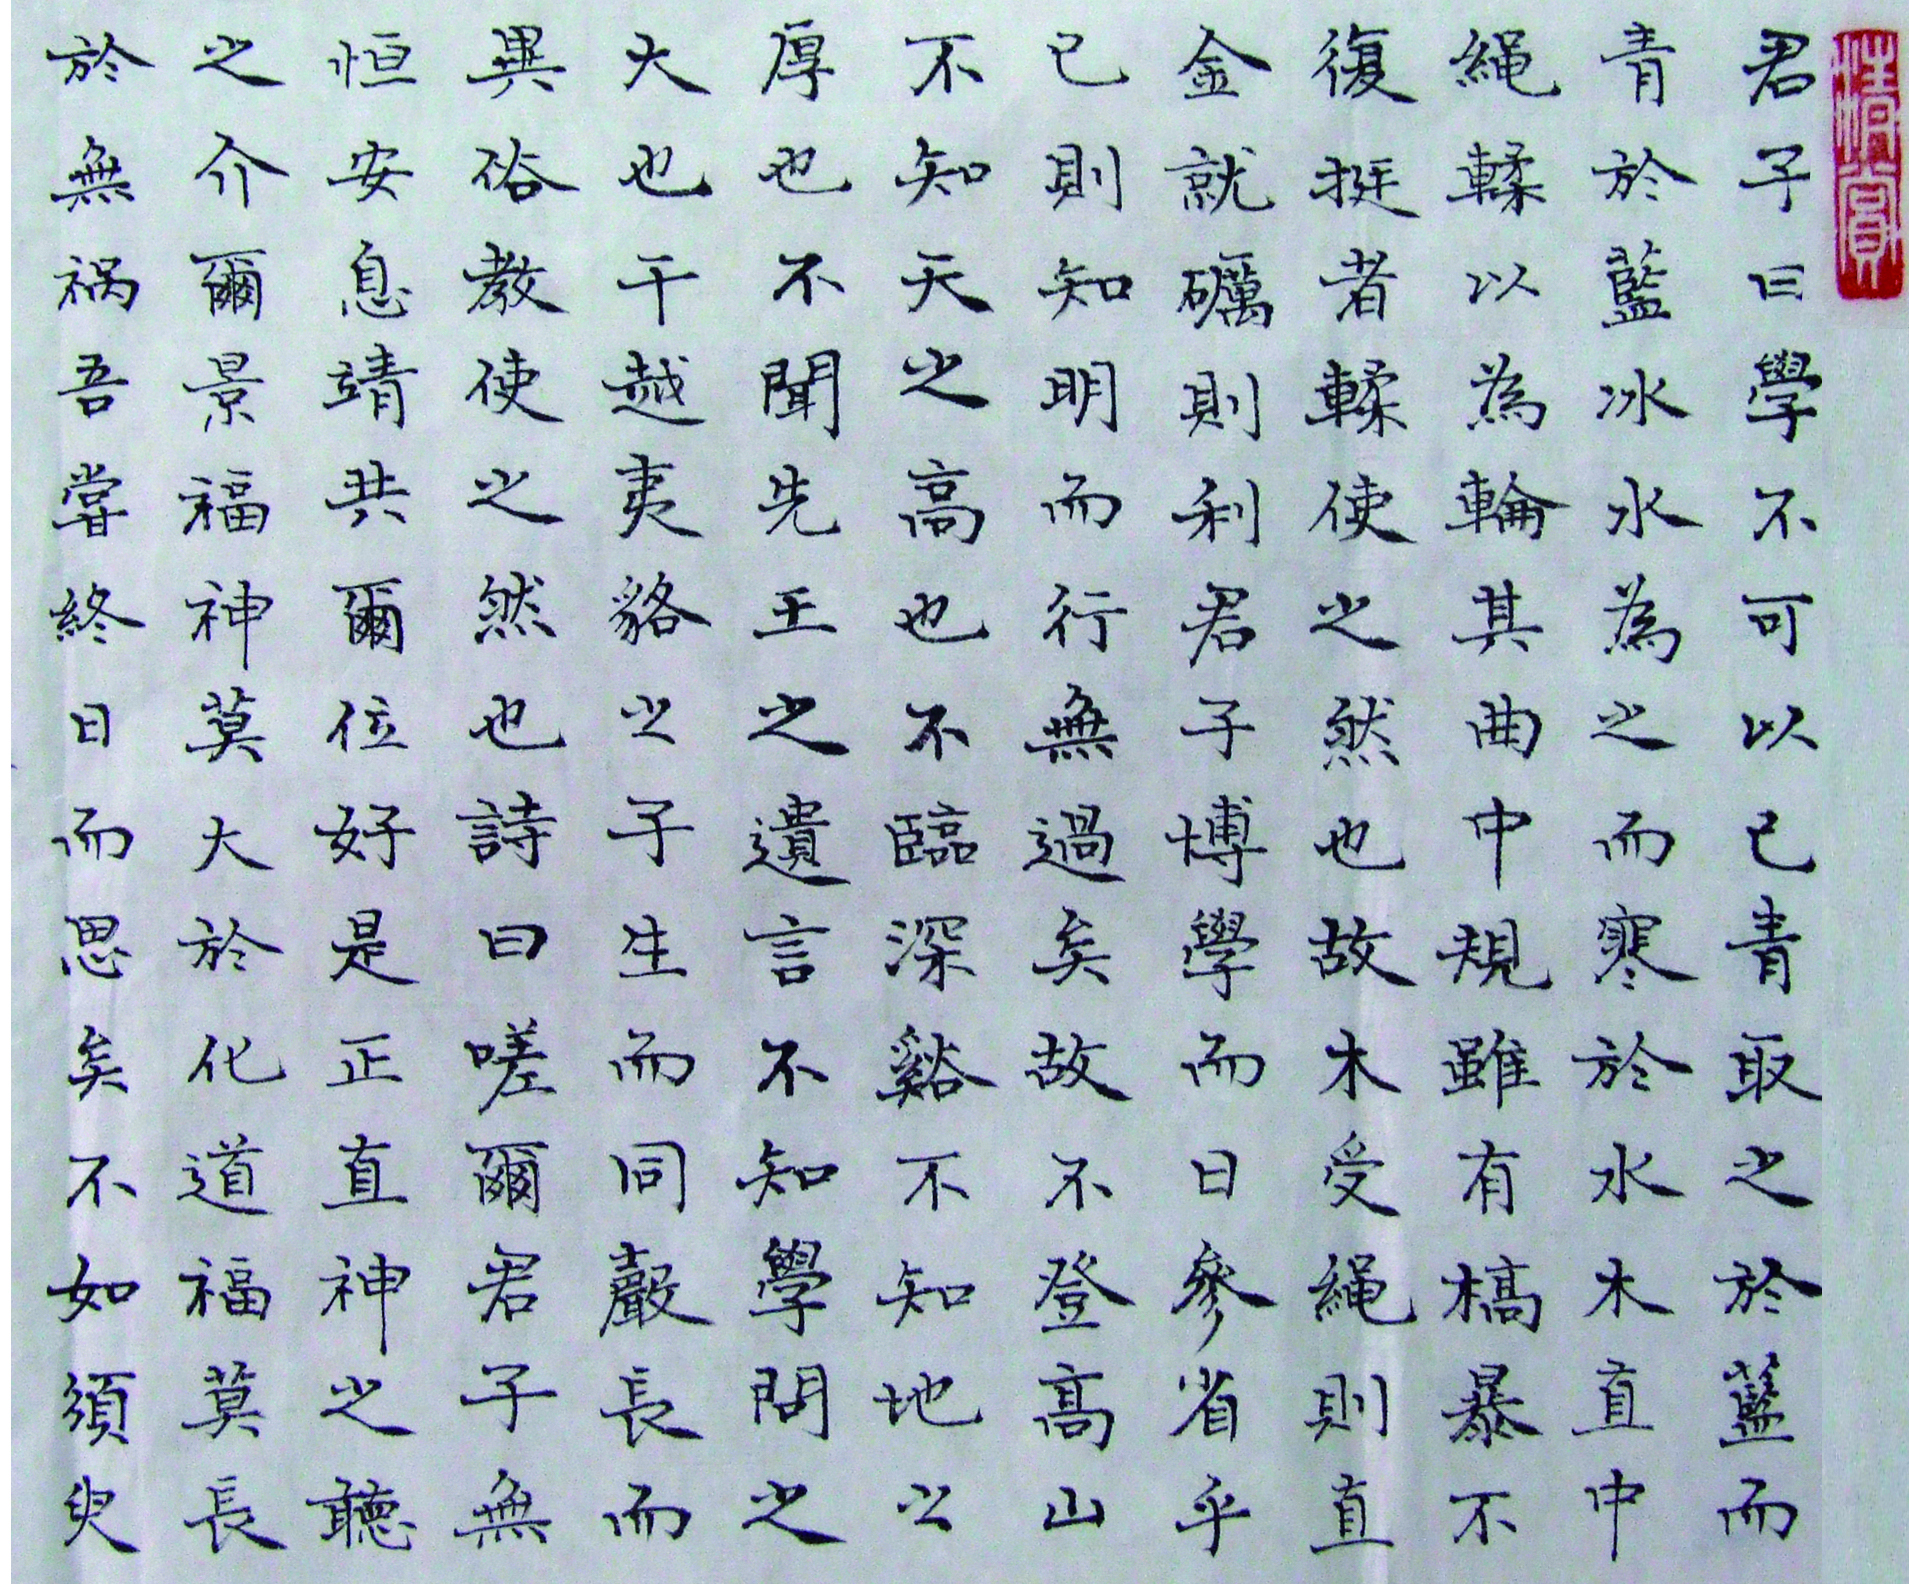 君子曰學不可以已青取之於藍而
青於藍冰水為之而寒於水木直中
繩輮以為輪其曲中規雖有槁暴不
復挺者輮使之然也故木受繩則直
金就礪則利君子博學而日參省乎
已則知明而行無過矣故不登高山
不知天之高也不臨深谿不知地之
厚也不聞先王之遺言不知學問之
大也干越夷貉之子生而同嚴長而
異俗教使之然也詩曰嗟爾君子無
恒安息靖共爾位好是正直神之聽
之介爾景福神莫大於化道福莫長
於無禍吾嘗終日而思矣不如須臾